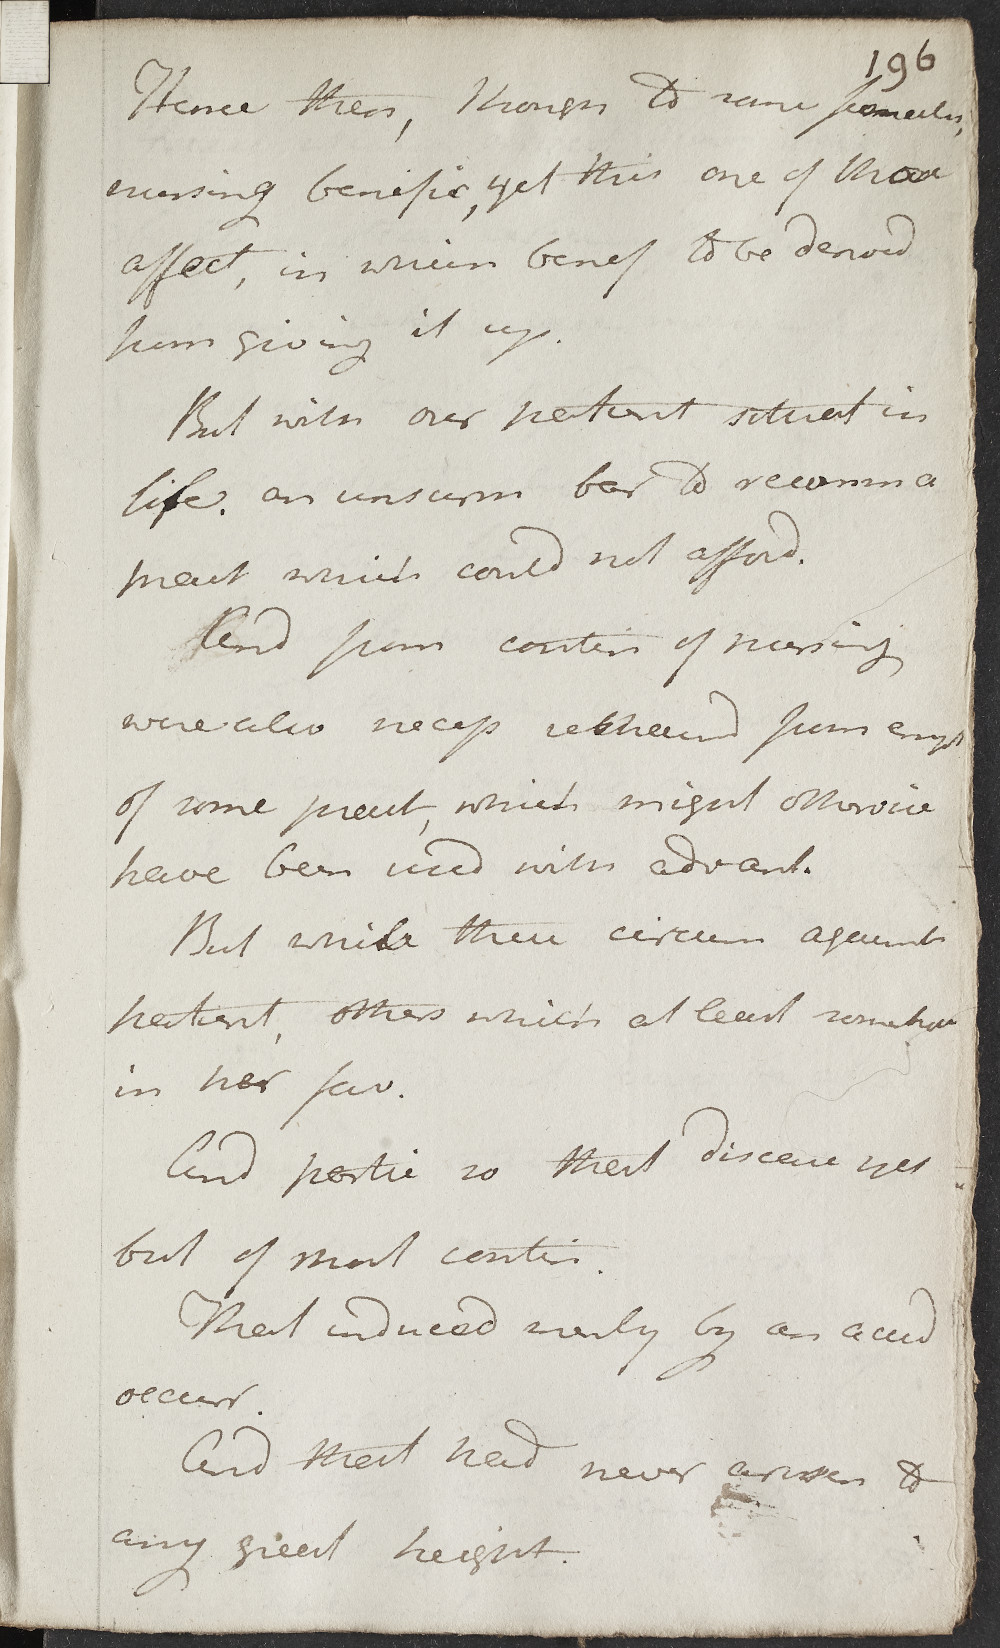 196
Hence then, though to some females,
nursing benefic, yet this one of those
affect, in which benef to be derived
from giving it up.
But with our patient situat in
life. an unsurm bar to recomm a
pract which could not afford.
And from contin of nursing
were also necess restraind from empl
of some pract, which might otherwise
have been used with advant.
But while these circum against
patient, others which at least somehow
in her fav.
And partic so that disease yet
but of short contin.
That induced merely by an accid
occurr.
And that had never arisen to
any great height.